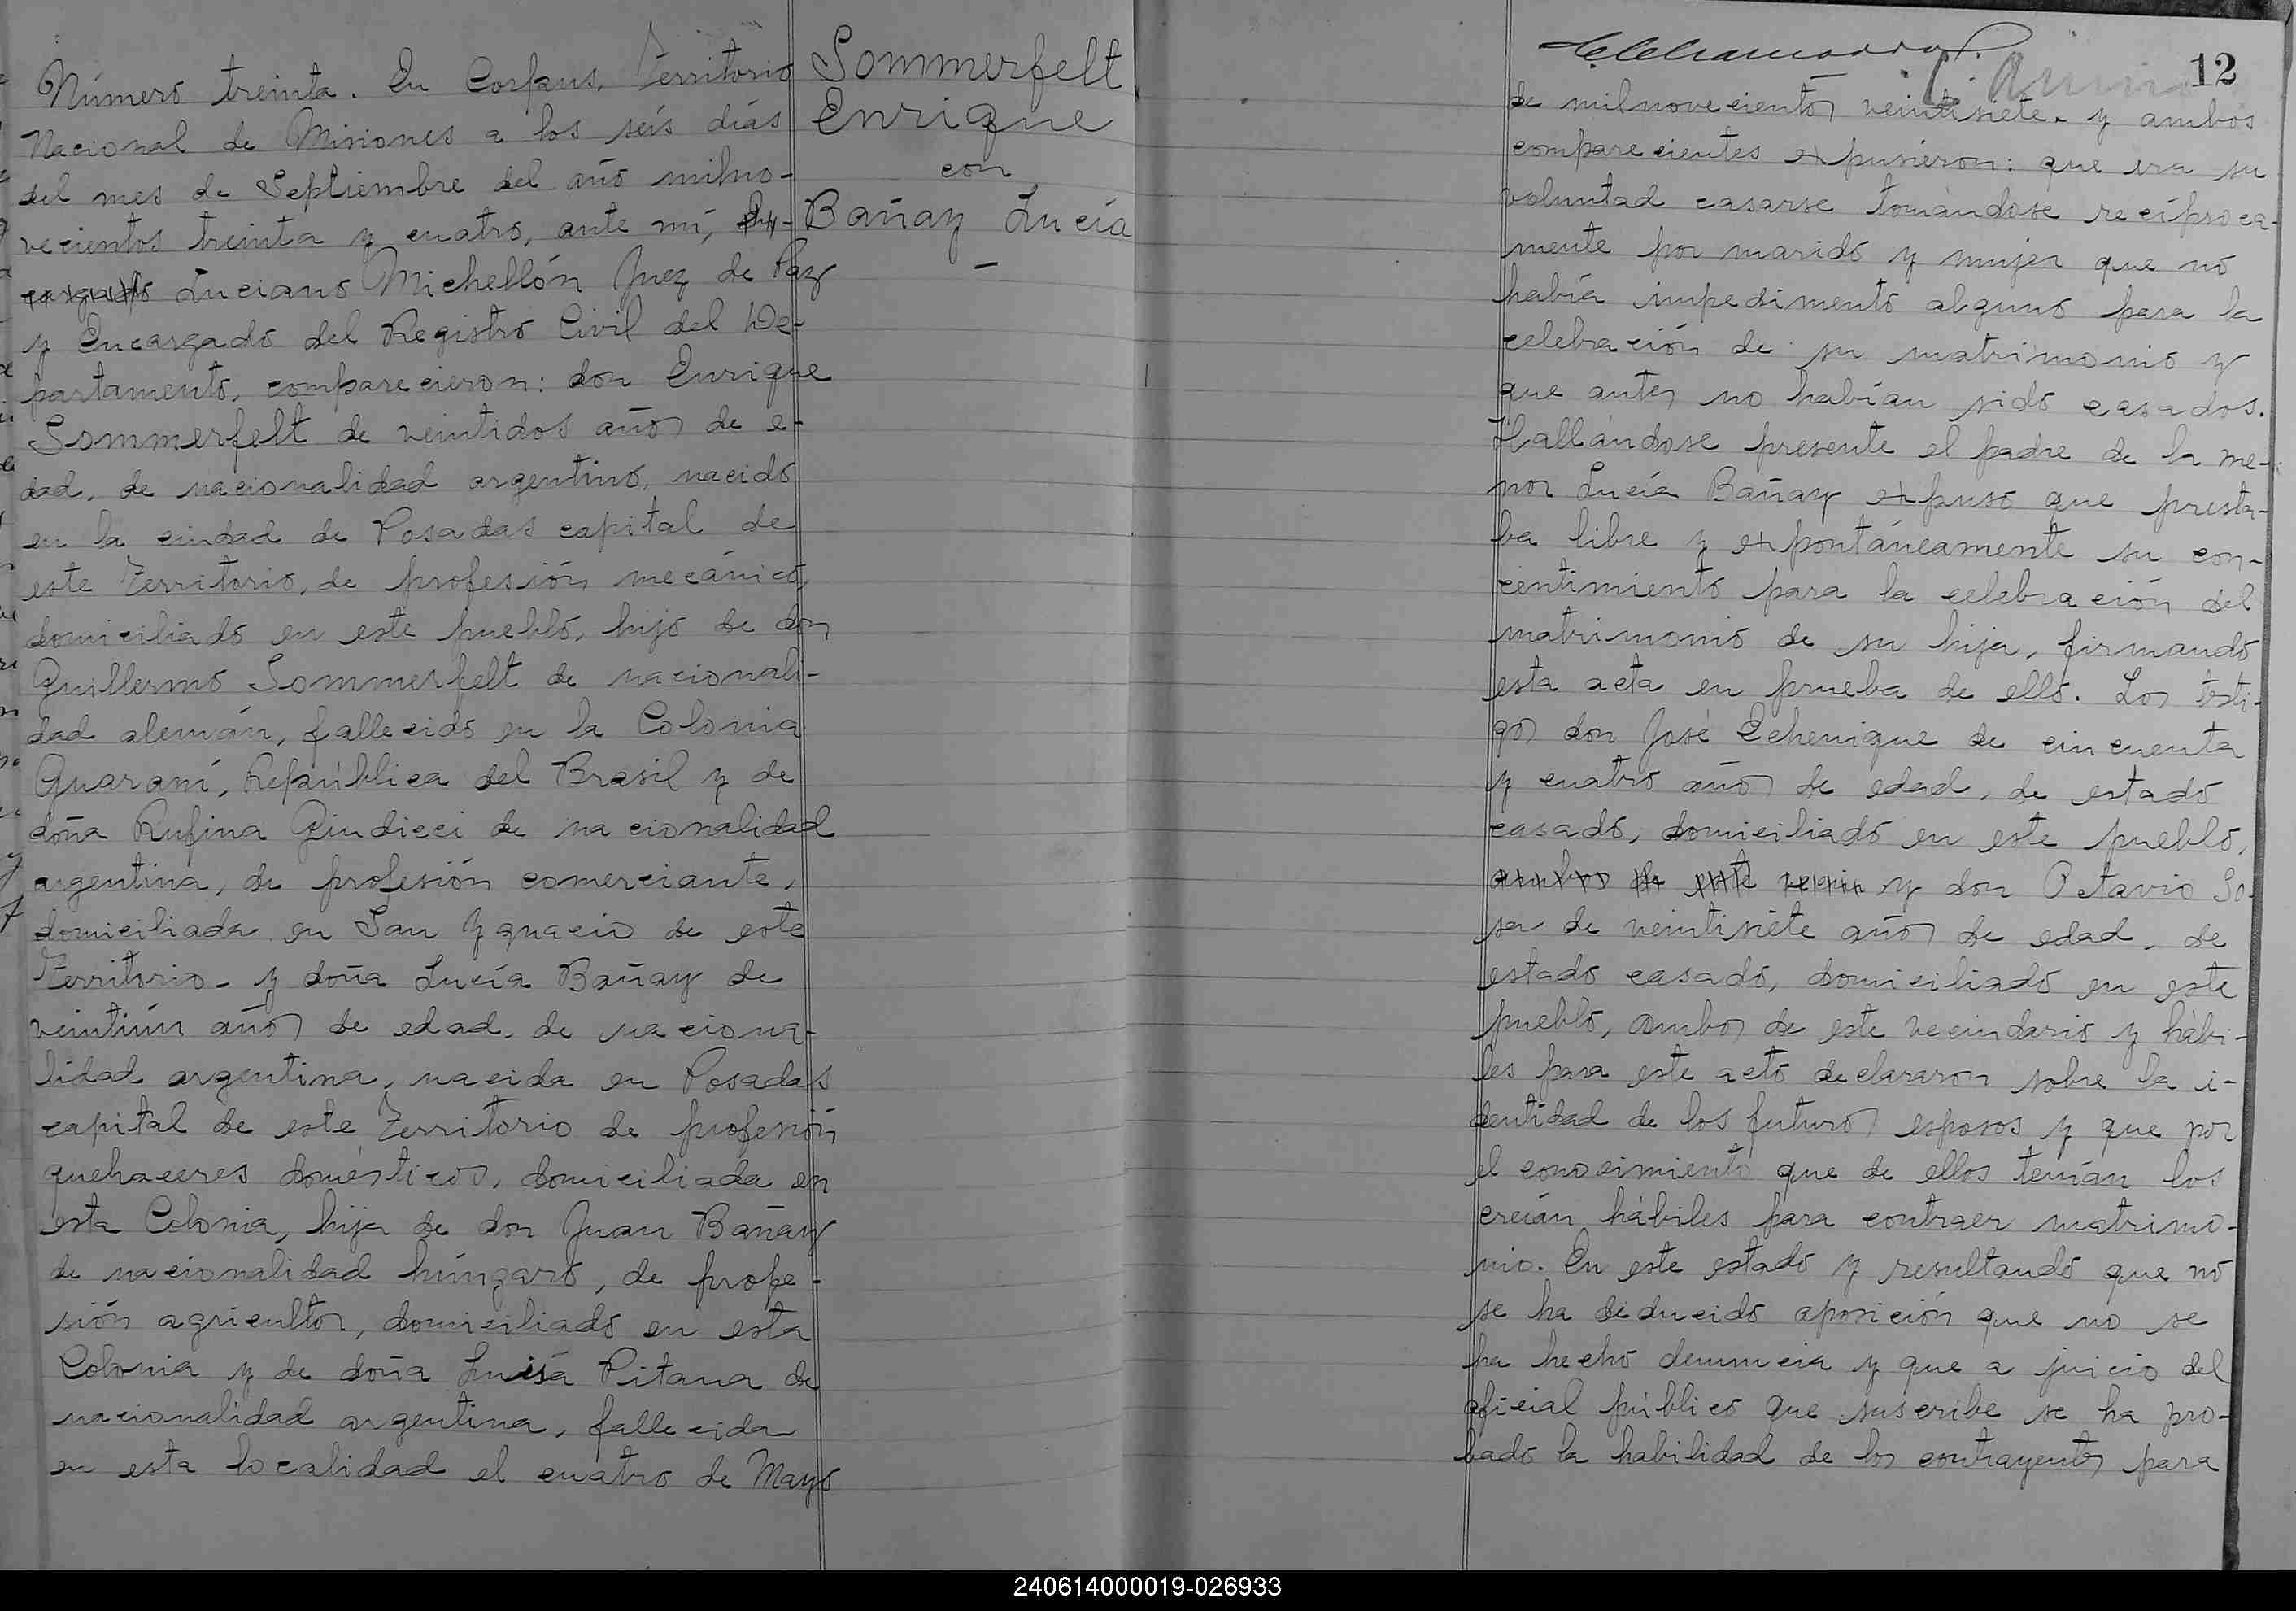 Número treinta. En Corpus, Territorio
Nacional de Misiones a los seis días
del mes de Septiembre del año milno-
vecientos treinta y cuatro, ante mí, En-
cargado Luciano Michellón Juez de Paz
y Encargado del Registro Civil del De-
partamento, comparecieron: don Enrique
Sommerfelt de veintidos años de e-
dad, de nacionalidad argentino, nacido
en la ciudad de Posadas capital de
este Territorio, de profesión mecánico,
domiciliado en este pueblo, hijo de don
Guillermo Sommerfelt de nacionali-
dad alemán, fallecido en la Colonia
Guaraní, República del Brasil y de
doña Rufina Giudicci de nacionalidad
argentina, de profesión comerciante,
domiciliada en San Ygnacio de este
Territorio - y doña Lucía Bañay de
veintiún años de edad, de naciona-
lidad argentina, nacida en Posadas
capital de este Territorio de profesión
quehaceres domésticos, domiciliada en
esta Colonia, hija de don Juan Bañay
de nacionalidad húngaro, de profe-
sión agricultor, domiciliado en esta
Colonia y de doña Luisa Pitana de
nacionalidad argentina, fallecida
en esta localidad el cuatro de Mayo
Sommerfelt
Enrique
con
Bañay Lucía
-
12
de milnovecientos veintisiete. y ambos
comparecientes expusieron: que era su
voluntad casarse tomándose recíproca-
mente por marido y mujer que no
había impedimento alguno para la
celebración de su matrimonio y
que antes no habían sido casados.
Hallándose presente el padre de la me-
nor Lucía Bañay expuso que presta-
ba libre y expontáneamente su con-
centimiento para la celebración del
matrimonio de su hija, firmando
esta acta en prueba de ello. Los testi-
gos don José Echenique de cincuenta
y cuatro años de edad, de estado
casado, domiciliado en este pueblo,
ambos de este y don Octavio So-
sa de veintisiete años de edad, de
estado casado, domiciliado en este
pueblo, ambos de este vecindario y hábi-
les para este acto declararon sobre la i-
dentidad de los futuros esposos y que por
el conocimiento que de ellos tenían los
creían hábiles para contraer matrimo-
nio. En este estado y resultando que no
se ha deducido oposición que no se
ha hecho denuncia y que a juicio del
oficial público que suscribe se ha pro-
bado la habilidad de los contrayentes para
240614000019-026933